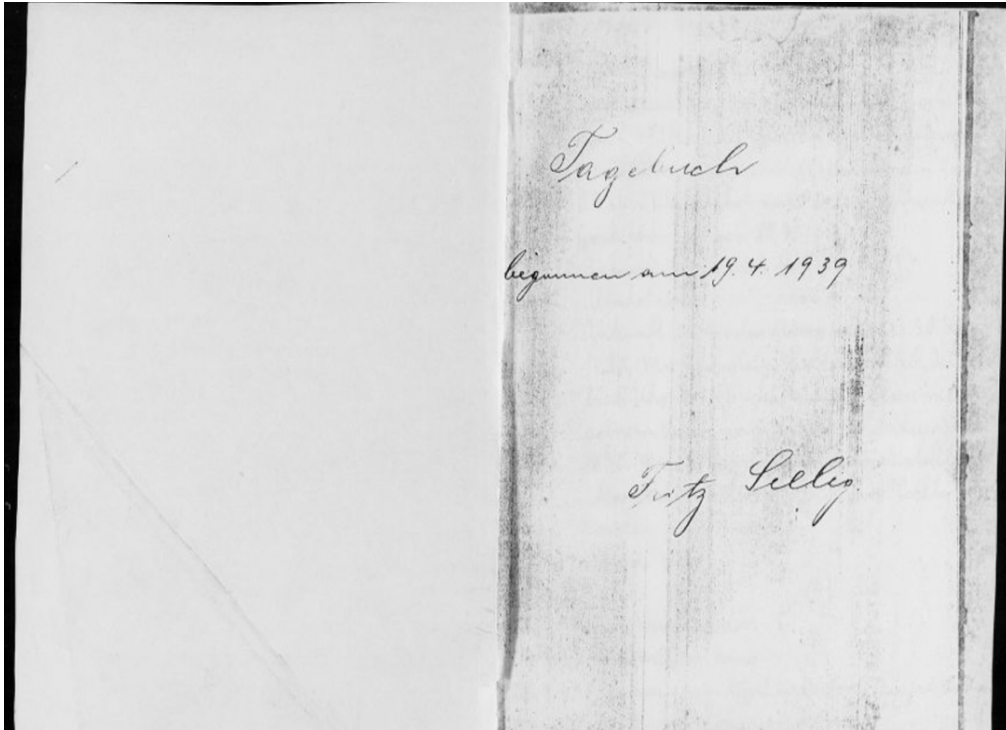 Tagebuch
begonnen am 19.4.1939
Fritz Selbig